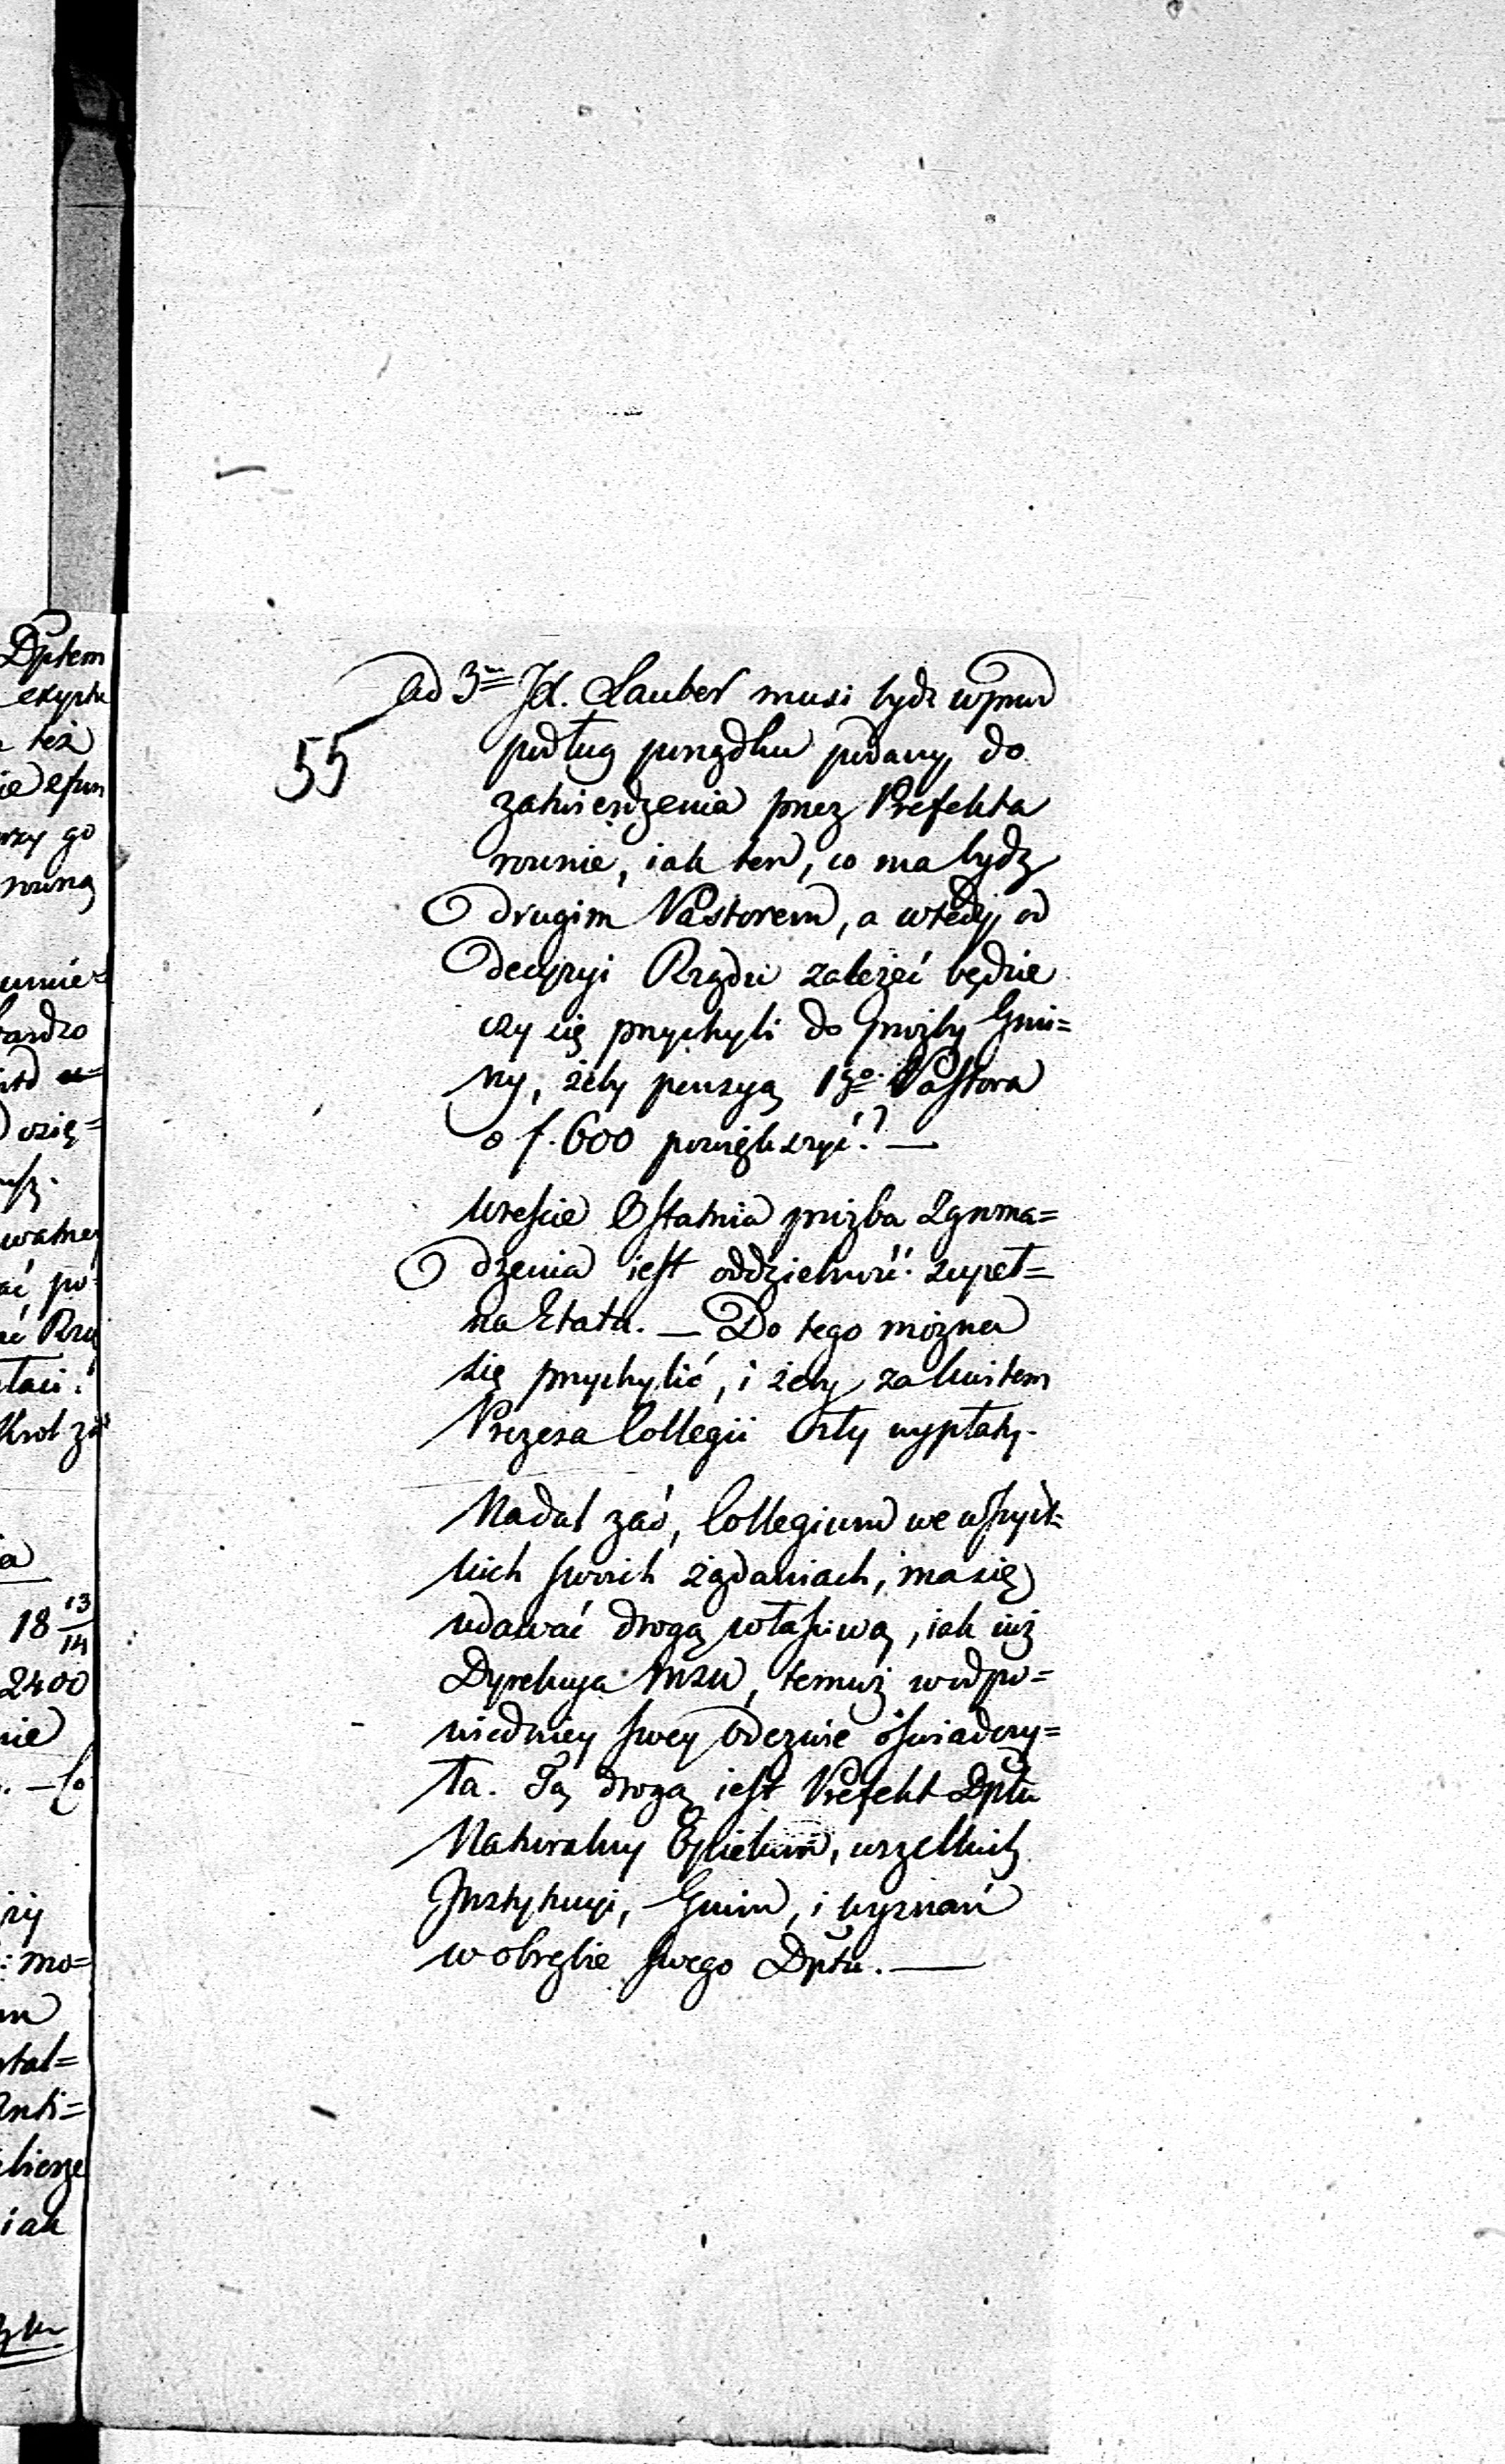 Dptem
też
go
równą
bardzo
po
Rzą
Król zaś
18 13/14
2400
nie
mo=
tal=
anti=
iak
55
ad 3m Jx. Lauber musi bydz wprzod
podług porządku podany do
zatwierdzenia przez Prefekta
rownie, iak ten, co ma bydz
drugim Pastorem, a wtedy od
decyzyi Rządu zależeć będzie
czy się przychyli do prożby Gmi=
ny, żeby pensyą 1go Pastora
o f. 600 powiększyć? —
Wreście Ostatnia prożba Zgroma=
dzenia iest oddzielność zupeł=
na Etatu. — Do tego można
się przychylić, i żeby za kwitem
Prezesa Collegii szły wypłaty.
Nadal zaś, Collegium we wszyst=
kich swoich żądaniach, ma się
udawać drogą właściwą, iak iuż
Dyrekcya Mzu, temuż w odpo=
wiedniey swey Odezwie oświadczy=
ła. Tą drogą iest Prefekt Dptu
Naturalny Opiekun, wszelkich
Instytucyi, Gmin, i wyznań
w obrębie swego Dptu. —